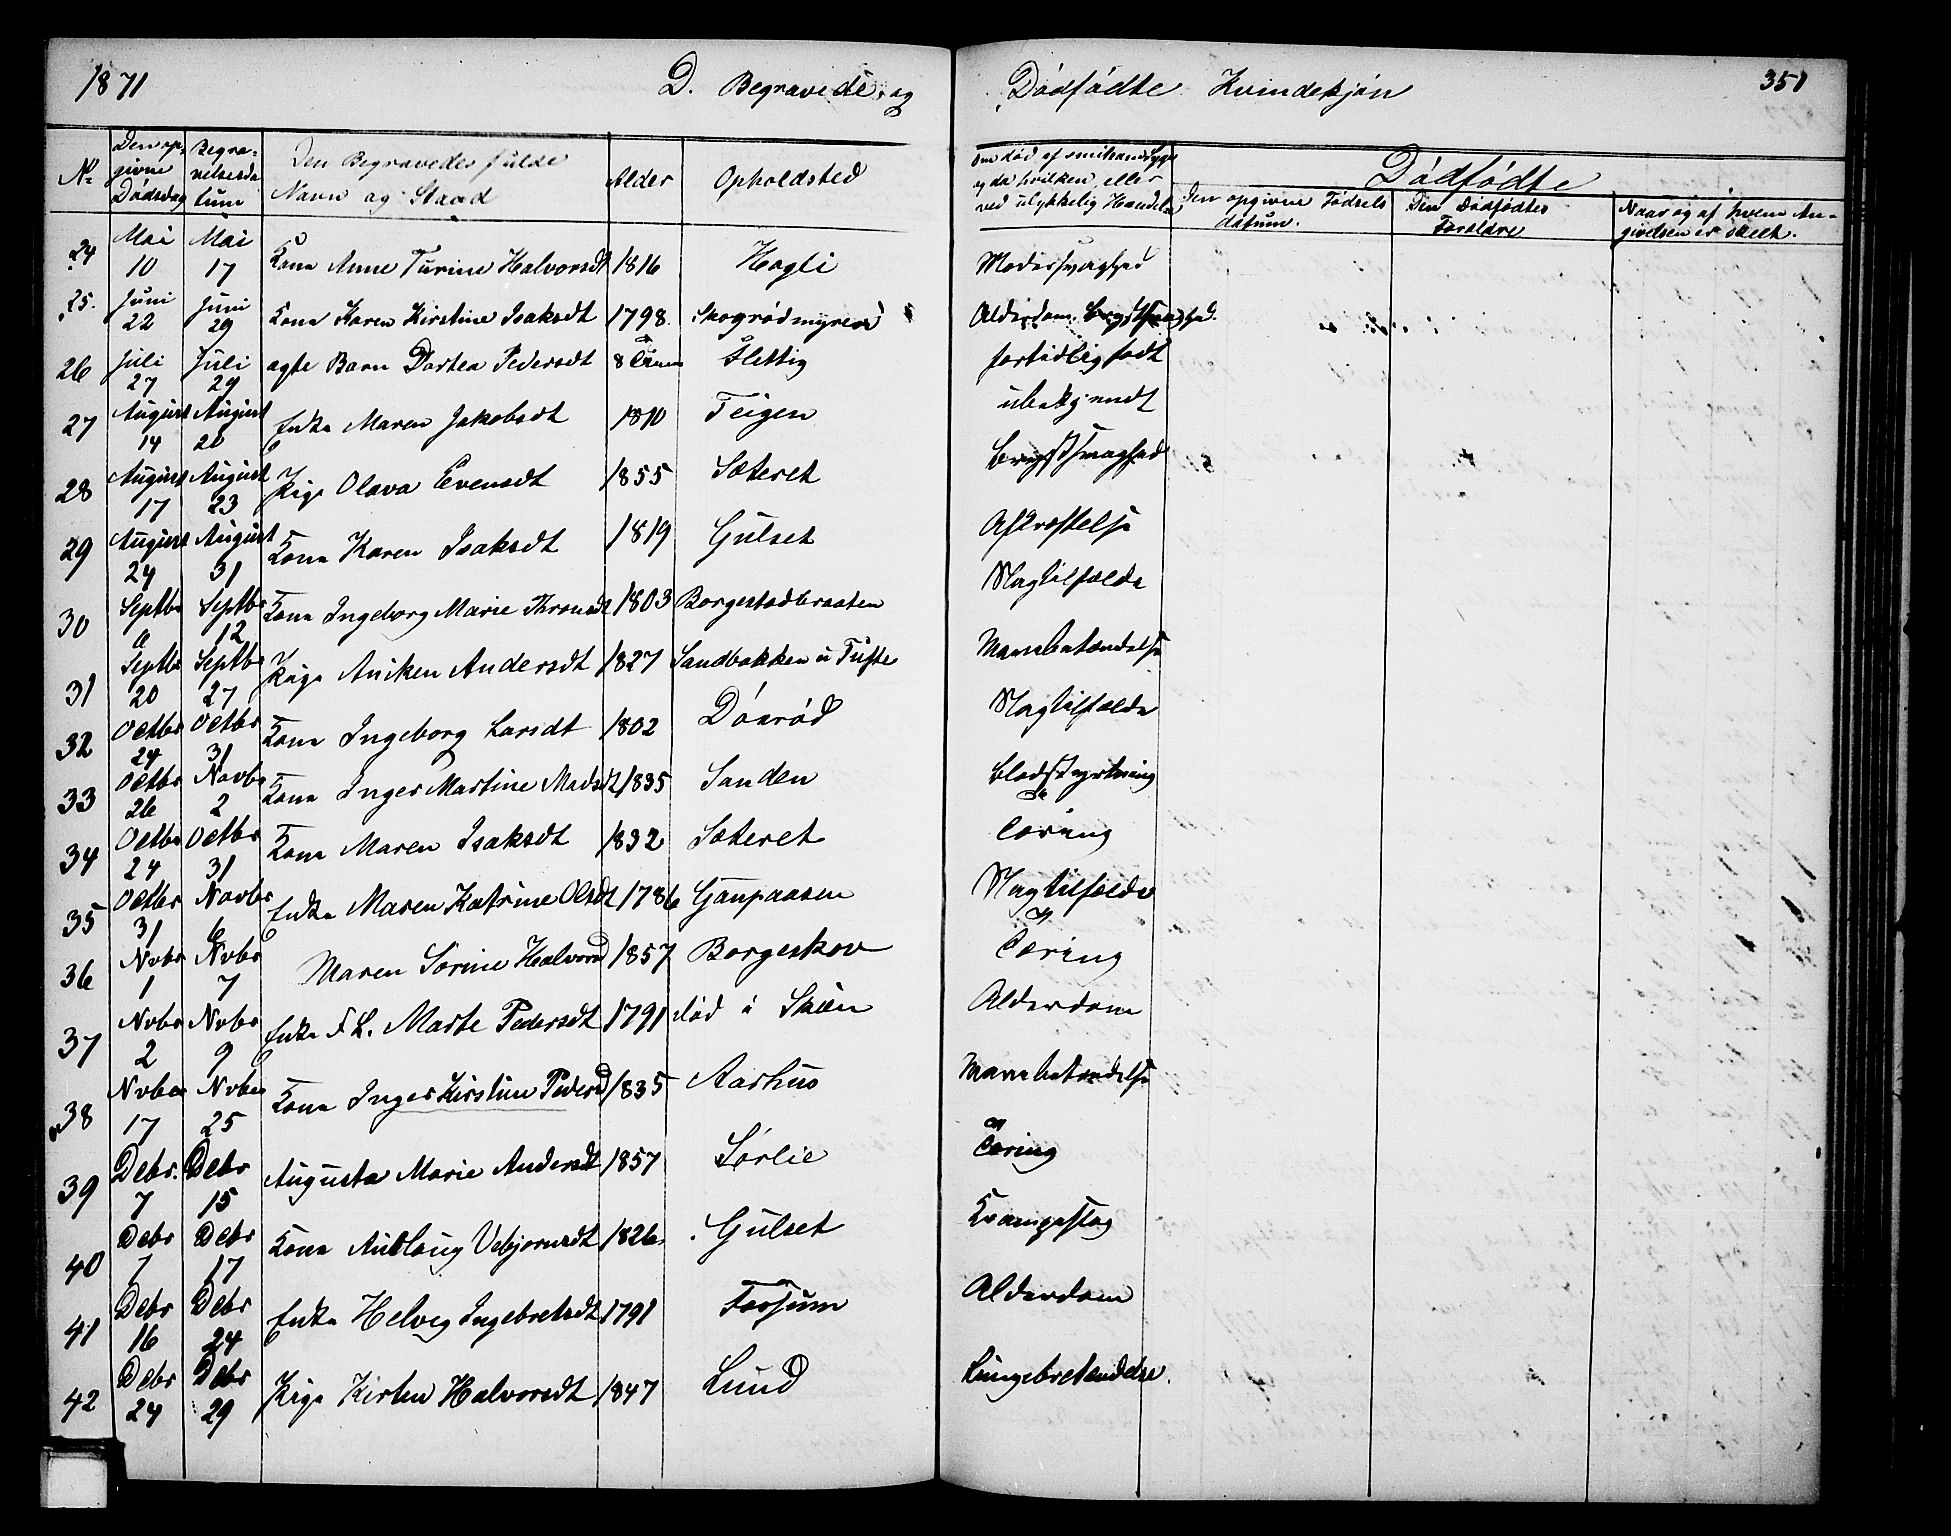 1871 D. Begravede og Dödfödte Kvindekjön 351
No Den opgivne Dödsdag Begravelsesdatum Den Begravedes fulde Navn og Stand Alder Opholdsted Om död af smitsom Syge og da hvilken, eller ved ulykkelig Hændelse Dödfödte
Den opgivne Födselsdatum. Den Dödfödtes Forældre Naar og af hvem Angivelsen er skeet.
24 Mai 10 Mai 17 Kone Anne Turine Halvorsdt 1816 Hogli Modersvaghed
25. Juni 22 Juni 29 Kone Karen Kirstine Isaksdt 1798. Skogrödmyrene Alderdom. Brystsvaghed.
26 Juli 27 Juli 29 ægte Barn Dortea Pedersdt 8 Timer Slettig fortidlig födt
27 August 14 August 20 Enke Maren Jakobsdt 1810 Teigen ubekjendt
28 August 17 August 23 Pige Olava Evensdt 1855 Sæteret Brystsvaghed
29 August 24 August 31 Kone Karen Isaksdt 1819 Gulset Afkræftelse
30 Septbr 6 Septbr 12 Kone Ingeborg Marie Thronsdt 1803 Borgestadbraaten Slagtilfælde
31 Septbr 20 Septbr 27 Pige Aniken Andersdt 1827 Sandbakken u Tufte Mavebetændelse
32 Octbr 24 Octbr 31 Kone Ingeborg Larsdt 1802 Dönröd Slagtilfælde
33 Octbr 26 Novbr 2 Kone Inger Martine Madsdt 1835 Sanden Blodstyrtning
34 Octbr 24 Octbr 31 Kone Maren Isaksdt 1832 Sæteret Tæring
35 Octbr 31 Novbr 6 Enke Maren Katrine Olsdt 1786 Gampaasen Slagtilfælde
36 Nvbr 1 Nvbr 7 Maren Sörine Halvorsd 1857 Borgeskov Tæring
37 Nvbr 2 Nvbr 9 Enke F.L. Marte Pedersdt 1791 död i Skien Alderdom
38 Nvber 17 Nvber 25 Kone Inger Kirstine Pedersd 1835 Aarhus Mavebetændelse
39 Debr. 7 Debr 15 Augusta Marie Andersdt 1857 Sörlie Tæring
40 Debr 7 Debr 17 Kone Aüslaug Vebjornsdt 1826 Gulset Krampeslag
41 Debr 16 Debr 24 Enke Helvig Ingebretsdt 1791 Fossum Alderdom
42 Debr 24 Debr 29 Pige Kirsten Halvorsdt 1847 Lund Lungebetændelse.